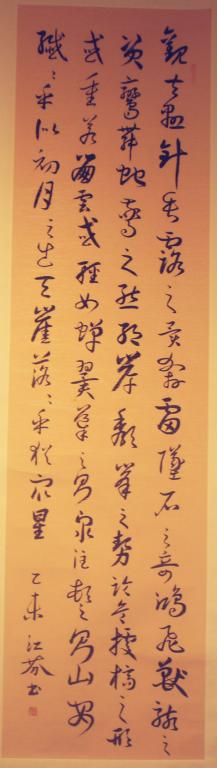 觀夫懸針垂露之異奔雷墜石之奇鴻飛獸駭之
資鸞舞蛇驚之態絕岸頹峯之勢臨危據槁之形
或重若崩雲或輕如蟬翼導之則泉注頓之則山安
纖纖乎似初月之出天崖落落乎猶眾星
乙未 江芬書